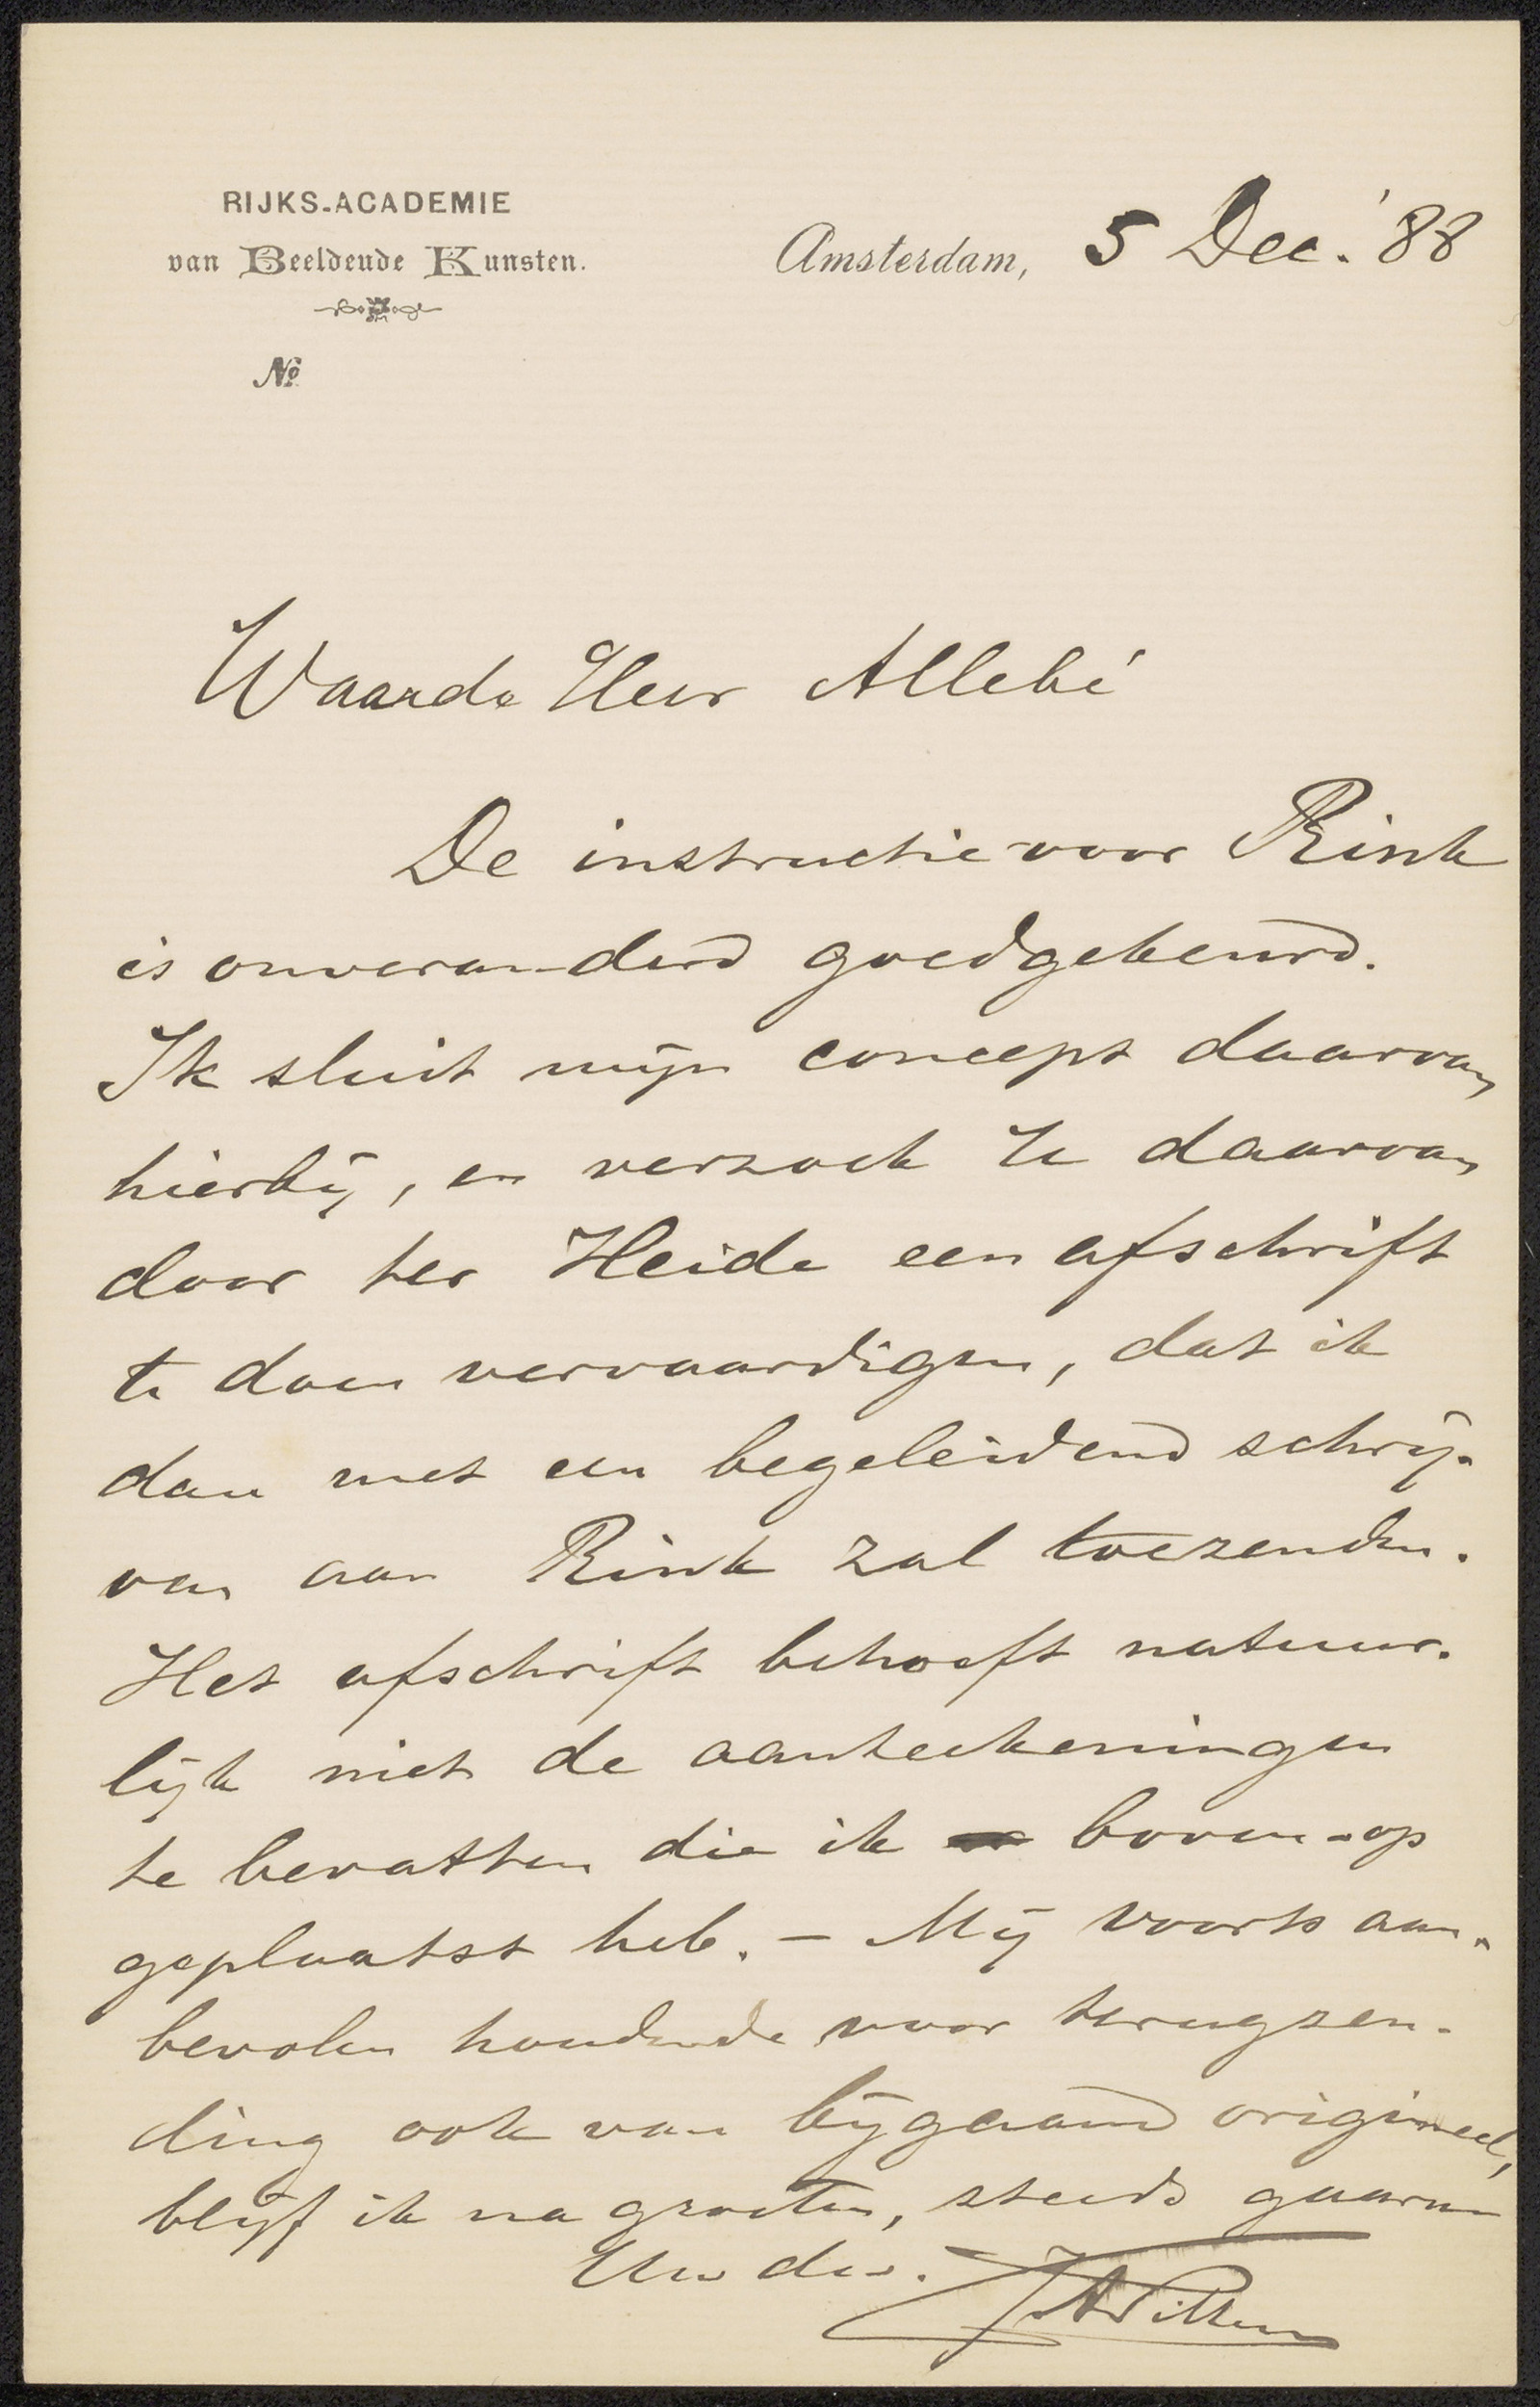 RIJKS-ACADEMIE
van Beeldende Kunsten.
Amsterdam, 5 Dec. '88
No.
Waarde Heer Allebé
De instructie voor Rink
is onveranderd goedgekeurd.
Ik sluit mijn concept daarvan
hierbij, en verzoek U daarvan
door ter Heide een afschrift
te doen vervaardigen, dat ik
dan met een begeleidend schrij-
ven aan Rink zal toezenden.
Het afschrift behoeft natuur-
lijk niet de aanteekeningen
te bevatten die ik boven-op
geplaatst heb. – Mij voorts aan-
bevolen houdende voor terugzen-
ding ook van bijgaand origineel,
blijf ik na groeten, steeds gaarne
Uw dw.